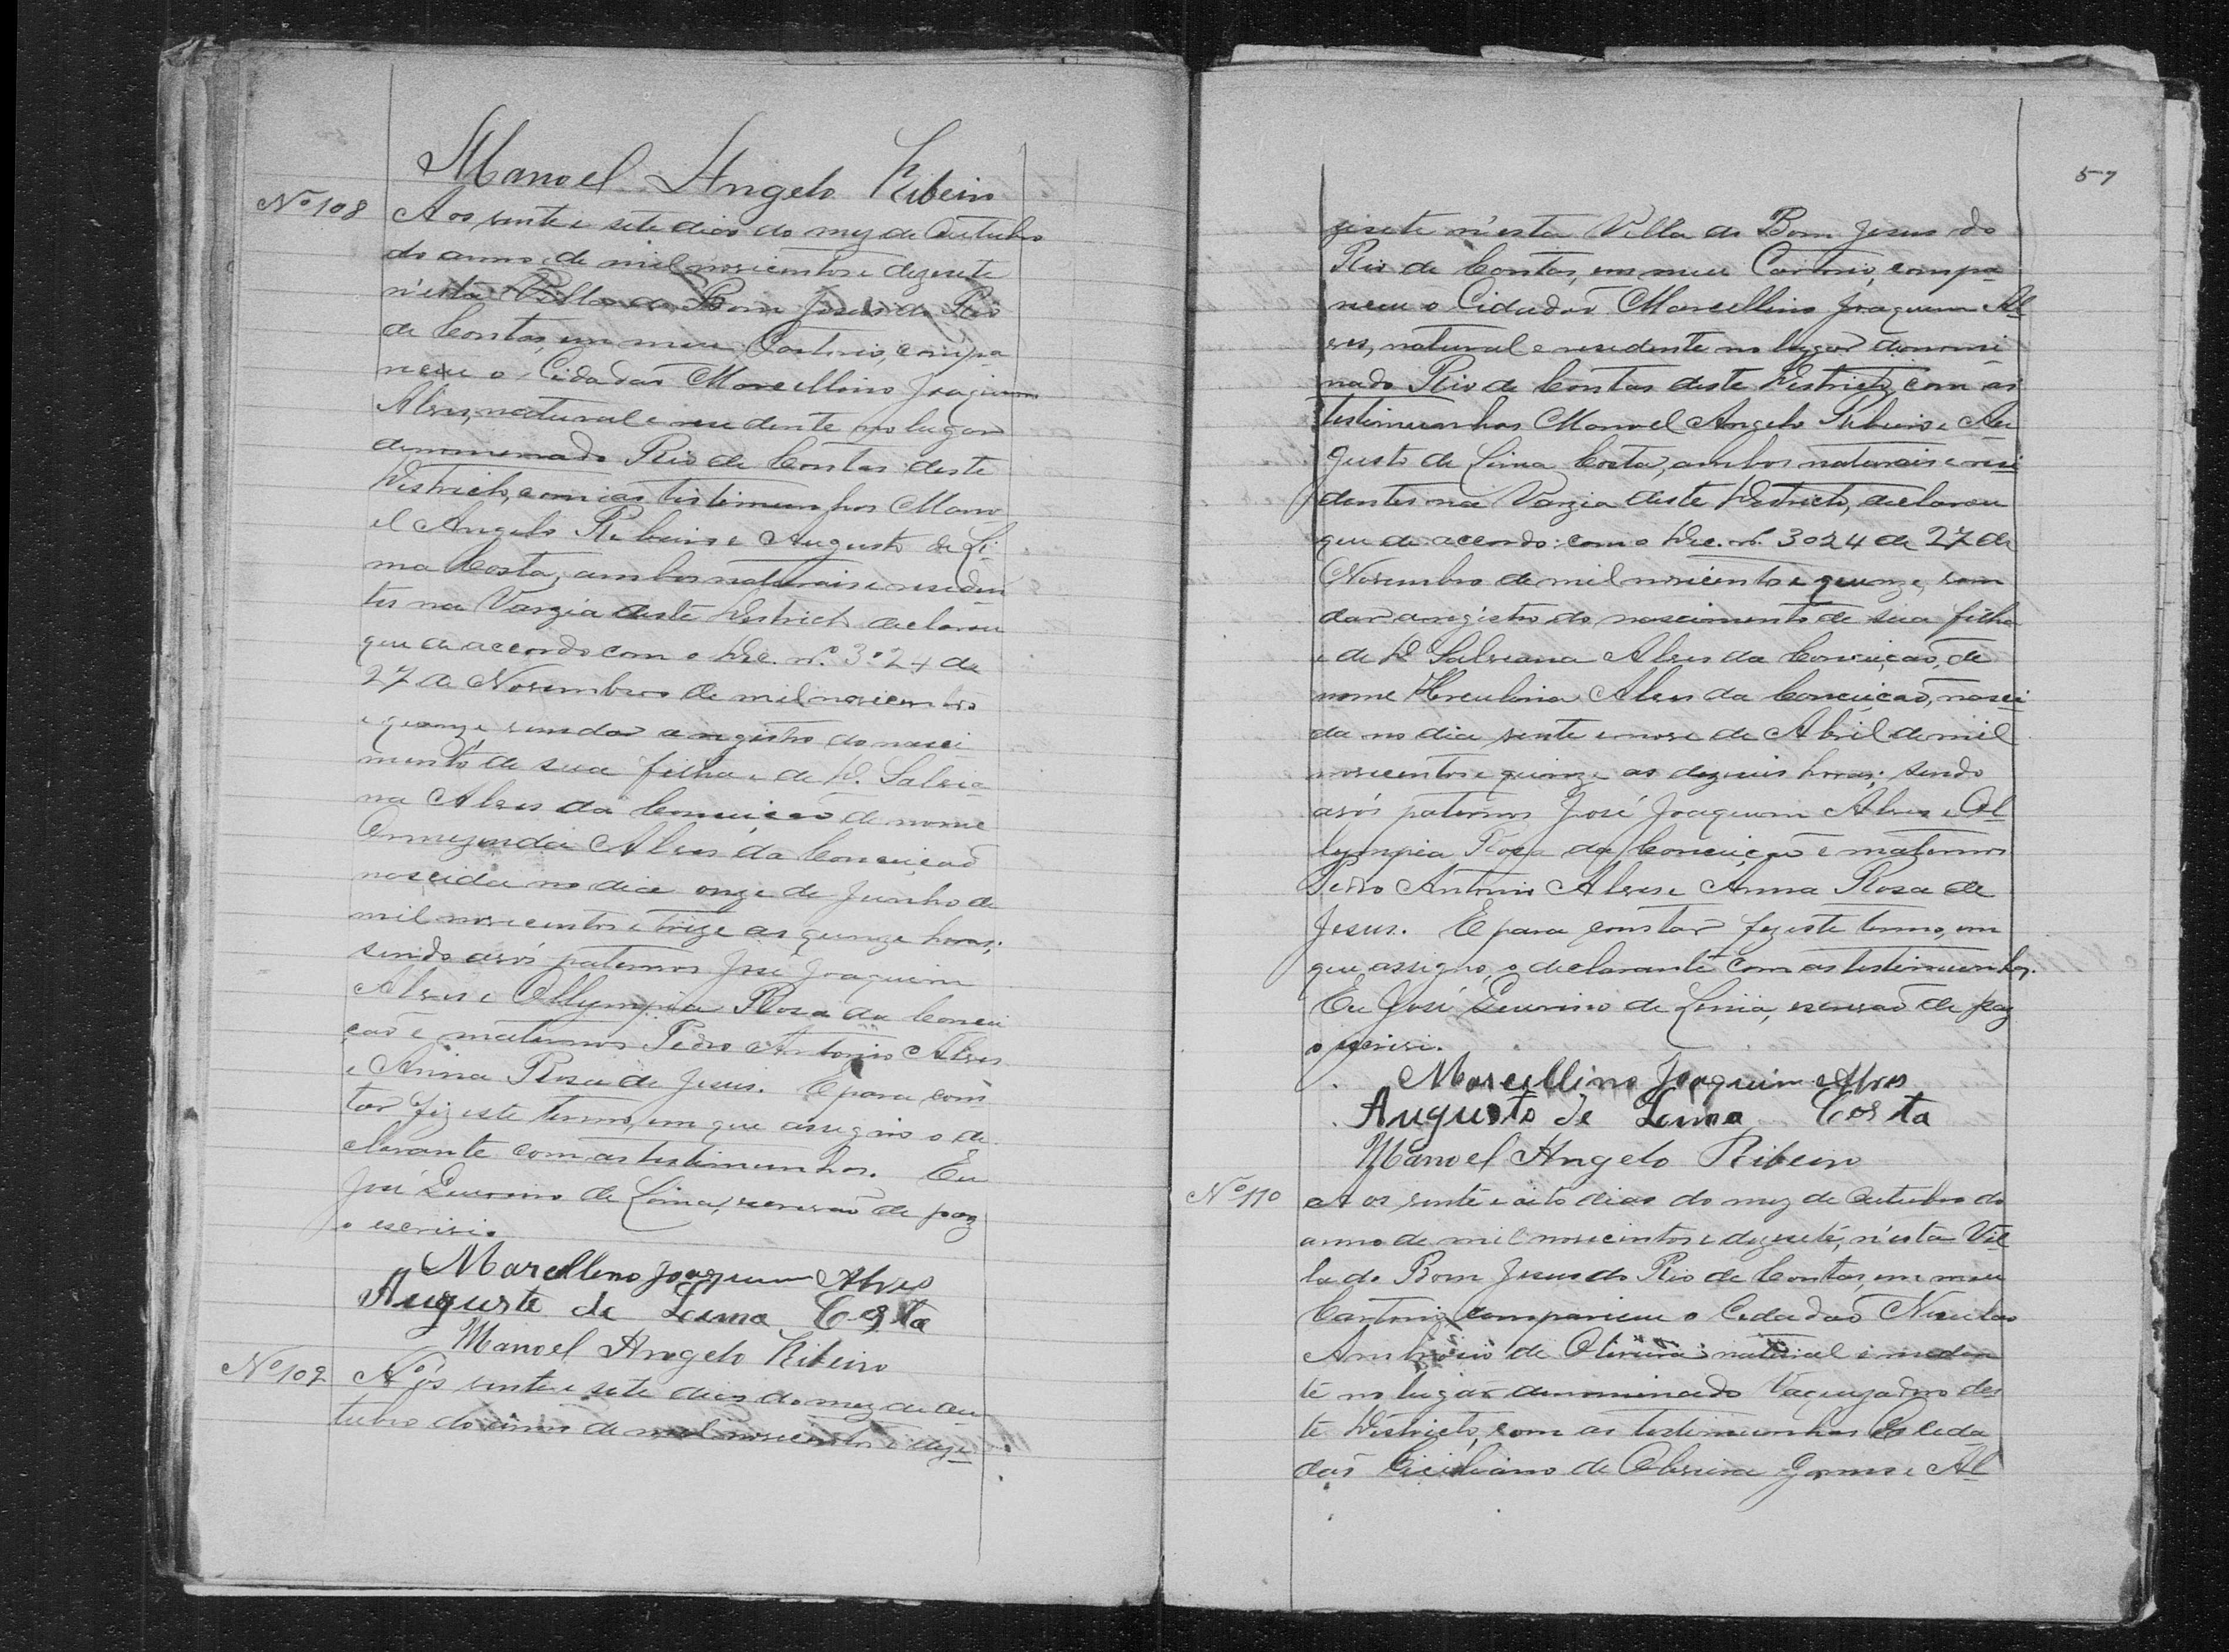 Manoel Angelo Ribeiro
Nº 108 Aos vinte e sete dias do mez de Outubro
do anno de mil novicentos e dezesete
n'esta Villa do Bom Jesus do Rio
de Contas, em meu Cartorio, compa
receu o Cidadão Marcellino Joaquim
Alves, natural e residente no lugar
denominado Rio de Contas deste
Districto, com as testimunhas Mano
el Angelo Ribeiro e Augusto de Li
ma Costa, ambos naturais e residen
tes na Varzia deste Districto declarou
que de accordo com o Dec. nº. 3024 de
27 de Novembro de mil novicentos
e quinze vem dar a registro do nasci
mento de sua filha e de D. Salvia
na Alves da Conceição de nome
Alves da Conceição
nascida no dia onze de Junho de
mil novicentos e treze as quinze horas;
sendo avós paternos José Joaquim
Alves e Ollympia Rosa da Concei
ção e maternos Pedro Antonio Alves
e Anna Rosa de Jesus. E para cons
tar fiz este termo, em que assigno o de
clarante com as testimunhas. Eu
José de Lima, escrivão de paz
o escrivi.
Marcellino Joaquim Alves
Auguste de Lima Costa
Manoel Angelo Ribeiro
Nº 109 Aos vinte e sete dias do mez de Ou
tubro do anno de mil novicentos e deze
57
zesete n'esta Villa do Bom Jesus do
Rio de Contas, em meu Cartorio, compa
receu o Cidadão Marcellino Joaquim Al
ves, natural e residente no lugar denomi
nado Rio de Contas deste Districto, com as
testimunhas Manoel Angelo Ribeiro e Au
gusto de Lima Costa, ambos naturais e resi
dentes na Varzia deste Districto, declarou
que de accordo com o Dec. nº. 3024 de 27 de
Novembro de mil novicentos e quinze, vem
dar a registro do nascimento de sua filha
e de D. Salviana Alves da Conceição, de
nome Herculina Alves da Conceição, nasci
da no dia vinte e nove de Abril de mil
novicentos e quinze as dezeseis horas; sendo
avós paternos José Joaquim Alves e Ol
lympia Rosa da Conceição e maternos
Pedro Antonio Alves e Anna Rosa de
Jesus. E para constar fiz este termo, em
que assigno o declarante com as testimunhas.
Eu José de Lima, escrivão de paz
o escrivi.
Marcellino Joaquim Alves
Augusto de Lima Costa
Manoel Angelo Ribeiro
Nº 110 Aos vinte e oito dias do mez de Outubro do
anno de mil novicentos e dezesete, n'esta Vil
la do Bom Jesus do Rio de Contas, em meu
Cartorio compareceu o Cidadão Nicolao
Ambrosio de Oliveira natural e residen
te no lugar denominado Vaquejadno des
te Districto, com as testimunhas Os cida
dãos de Oliveira Gomes e Al